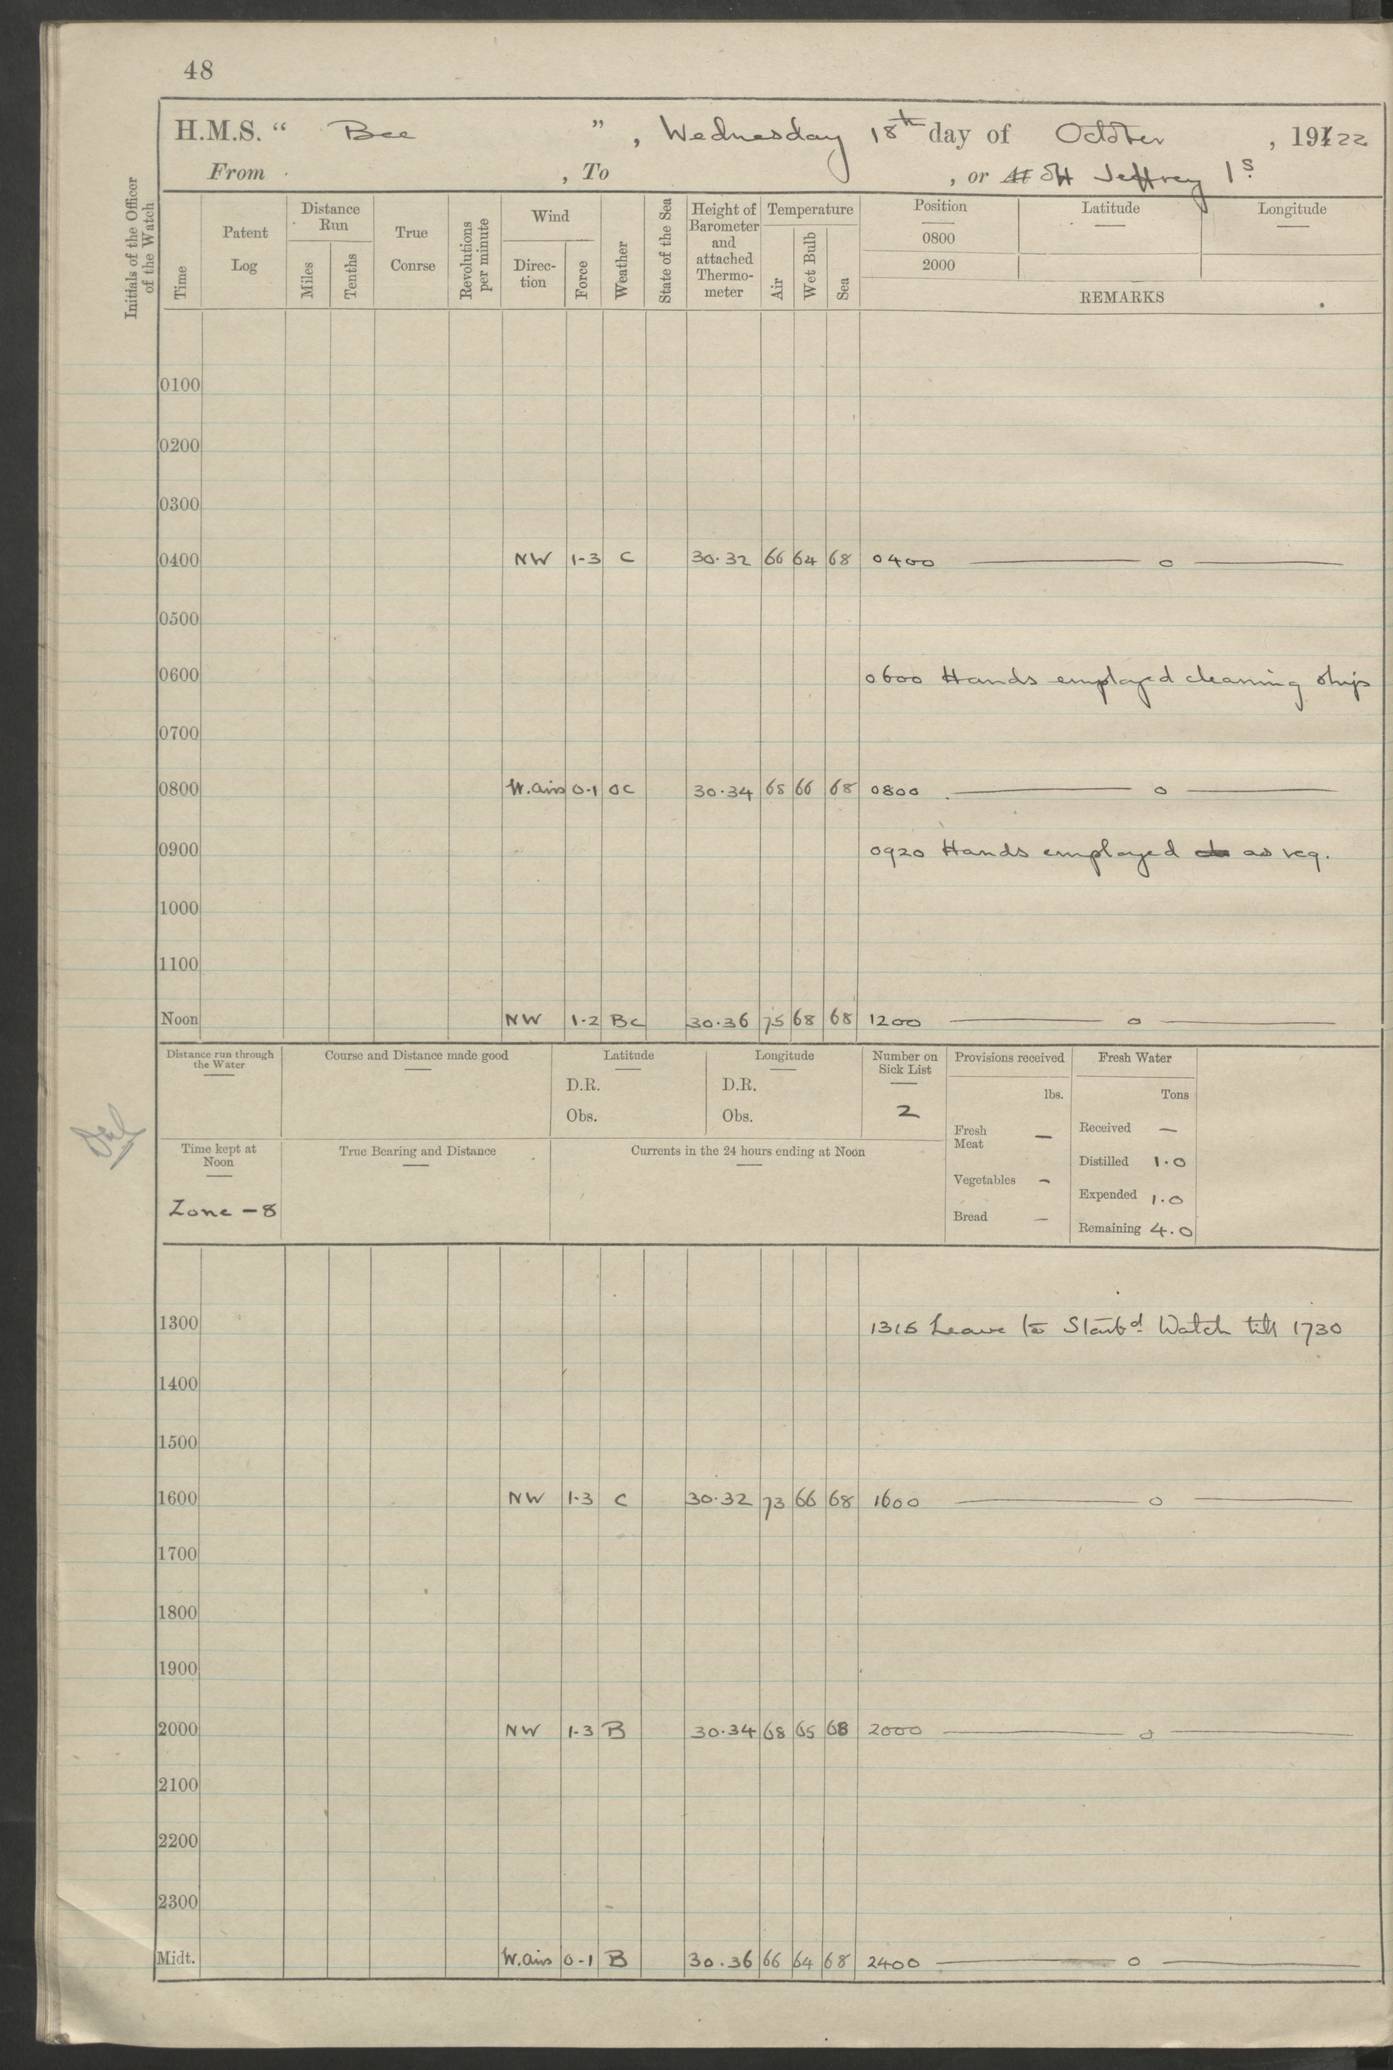 48
H.M.S. " Bee " , Wednesday 18th day of October , 19122
From , To , or At Off Jeffrey Is
Initials of the Officer of the Watch
Time
Patent Log
Distance Run
Miles
Tenths
True Conrse
Revolutions per minute
Wind
Direc-tion
Force
Weather
State of the Sea
Height of Barometer and attached Thermo-meter
Temperature
Air
Wet Bulb
Sea
Position
0800
2000
Latitude
Longitude
REMARKS
0100
0200
0300
0400 NW 1-3 C 30.32 66 64 68 0400 — o —
0500
0600 0600 Hands employed cleaning ship
0700
0800 W.airs 0-1 OC 30.34 68 66 68 0800 — o —
0900 0920 Hands employed as req.
1000
1100
Noon NW 1-2 Bc 30.36 75 68 68 1200 — o —
Distance run through the Water
Course and Distance made good
Latitude
D.R.
Obs.
Longitude
D.R.
Obs.
Number on Sick List
2
Provisions received
lbs.
Fresh Meat —
Vegetables -
Bread —
Fresh Water
Tons
Received —
Distilled 1.0
Expended 1.0
Remaining 4.0
Time kept at Noon
Zone -8
True Bearing and Distance
Currents in the 24 hours ending at Noon
1300 1315 Leave to Starbd Watch till 1730
1400
1500
1600 NW 1-3 C 30.32 73 66 68 1600 — o —
1700
1800
1900
2000 NW 1-3 B 30.34 68 65 68 2000 — o —
2100
2200
2300
Midt. W.airs 0-1 B 30.36 66 64 68 2400 — o —